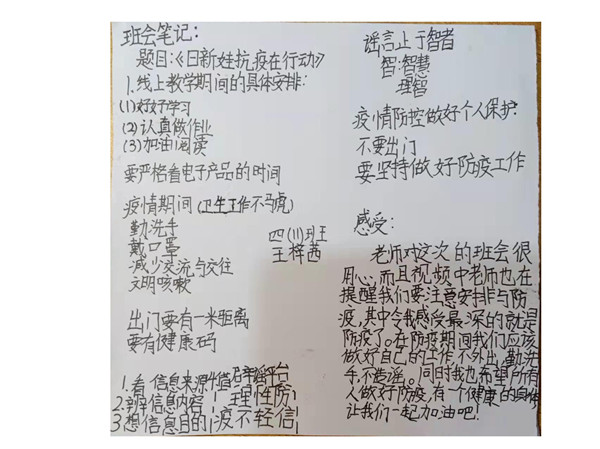 班会笔记:
题目:《日新娃抗疫在行动》
1.线上教学期间的具体安排:
(1)好好学习
(2)认真做作业
(3)加油阅读
要严格看电子产品的时间
疫情期间(卫生工作不马虎)
勤洗手
戴口罩
减少交流与交往
文明咳嗽
四(11)班
王梓茜
出门要有一米距离
要有健康码
1.看信息来源 平台
2.辨信息内容 理性防
3.想信息目的 疫不轻信
谣言止于智者
智:智慧
理智
疫情防控做好个人保护:
不要出门
要坚持做好防疫工作
感受:
老师对这次的班会很
用心,而且视频中老师也在
提醒我们要注意安排与防
疫,其中令我感受最深的就是
防疫了。在防疫期间我们应该
做好自己的工作,不外出,勤洗
手,不造谣。同时我也希望所有
人做好防疫,有一个健康的身体
让我们一起加油吧!